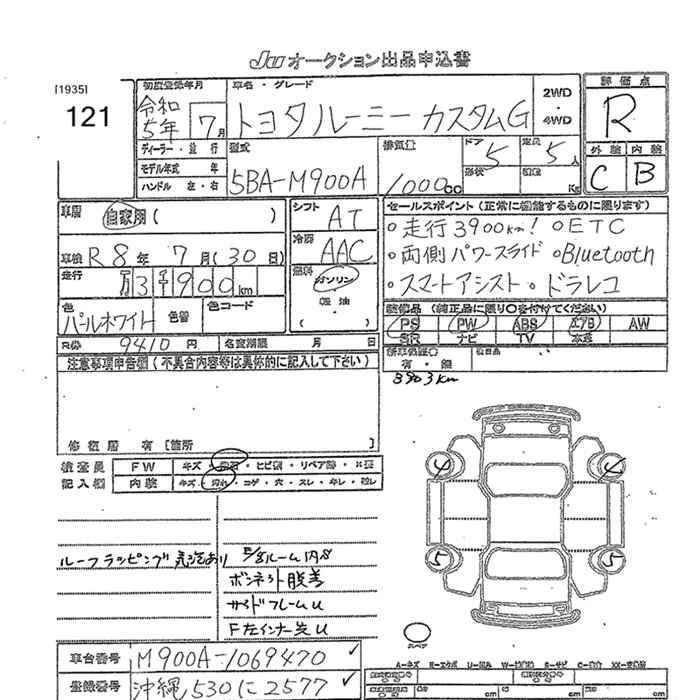 JU オークション出品申込書
[1935]
121
初度登録年月
令和5年 7月
車名・グレード
トヨタ ルーミー カスタムG
2WD
・
4WD
評価点
R
外装 内装
C B
ディーラー・並行
モデル年式 年
ハンドル 左・右
型式
5BA-M900A
排気量
1000cc
ドア
5
形状
定員
5人
積量
Kg
車歴 自家用( )
シフト
AT
冷房
AAC
燃料
ガソリン
軽油
( )
車検 R8年 7月(30日)
走行
万3千900km
色
パールホワイト
色替
色コード
セールスポイント(正常に機能するものに限ります)
○走行3900km! ○ETC
○両側パワースライド ○Bluetooth
・スマートアシスト・ドラレコ
装備品 (純正品に限り○を付けてください)
PS PW ABS エアB AW
SR ナビ TV 本革
新車保証○
有・無
R券 9410円 名変期限 月 日
3903km
注意事項申告欄(不具合内容等は具体的に記入して下さい)
修復歴 有[箇所 ]
検査員
記入欄
FW キズ・ ・ヒビ割・リペア跡・
内装 キズ・汚れ・コゲ・穴・スレ・キレ・
4 4
5 5
ルーフラッピング 気泡あり
ボンネット脱着
サイドフレームU
F左インナー先U
スペア
車台番号 M900A-1069470
登録番号 沖縄530に2577
A=キズ E=エクボ U=凹み W=波 S=サビ C=腐食 XX=交換
cm cm cm